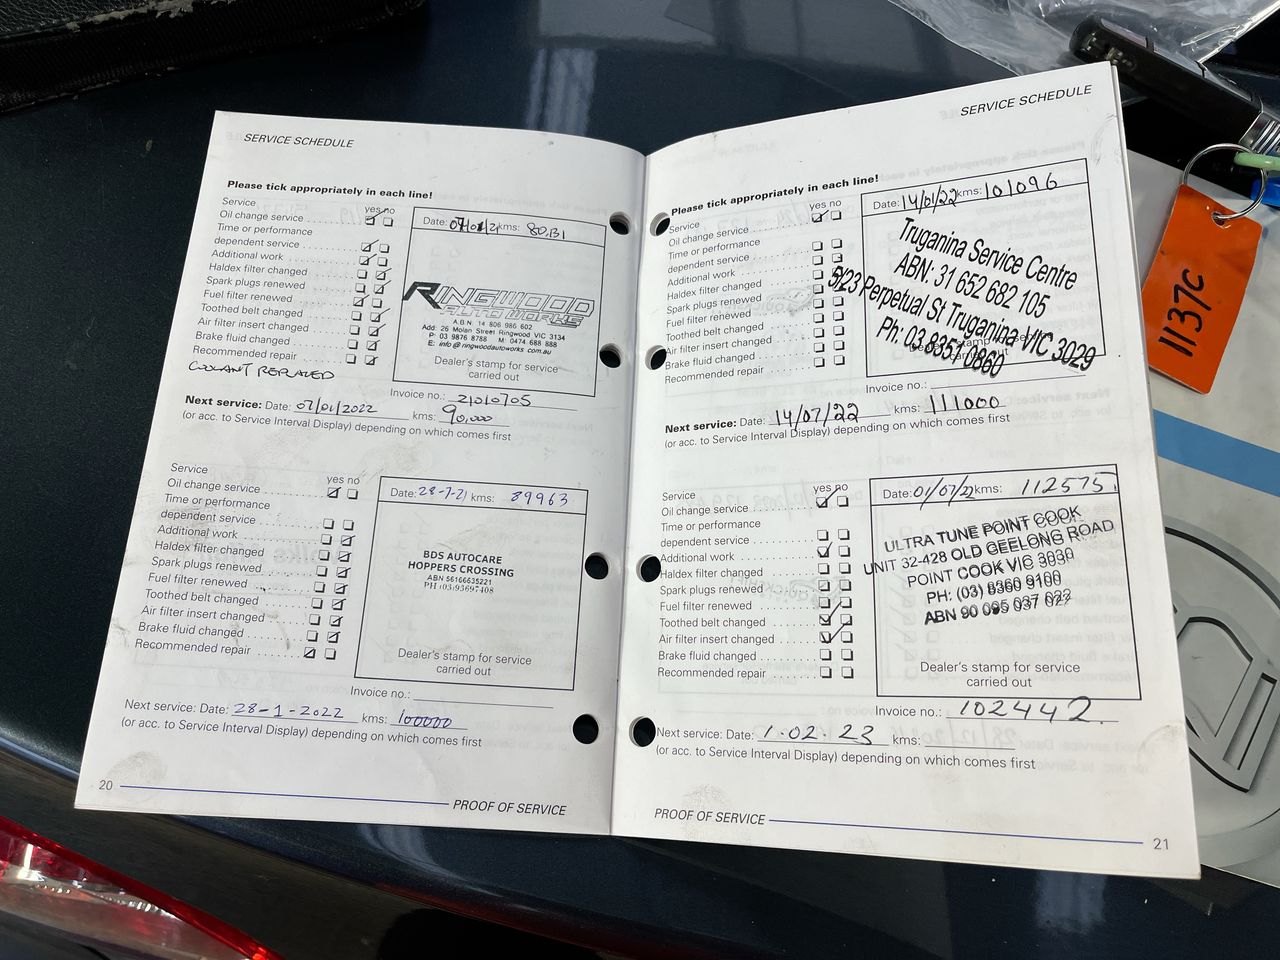 SERVICE SCHEDULE
Please tick appropriately in each line!
Service yes no
Oil change service
Time or performance
dependent service
Additional work
Haldex filter changed
Spark plugs renewed
Fuel filter renewed
Toothed belt changed
Air filter insert changed
Brake fluid changed
Recommended repair
COOLANT REPLACED
Date: 07/01/21 kms: 80,131
RINGWOOD
AUTO WORKS
A.B.N. 14 806 986 602
Add: 26 Molan Street Ringwood VIC 3134
P: 03 9876 8788 M: 0474 688 888
E: info@ringwoodautoworks.com.au
Dealer's stamp for service
carried out
Invoice no.: 21010705
Next service: Date: 07/01/2022 kms: 90,000
(or acc. to Service Interval Display) depending on which comes first
Service yes no
Oil change service
Time or performance
dependent service
Additional work
Haldex filter changed
Spark plugs renewed
Fuel filter renewed
Toothed belt changed
Air filter insert changed
Brake fluid changed
Recommended repair
Date: 28-7-21 kms: 89963
BDS AUTOCARE
HOPPERS CROSSING
ABN 56166635221
PH (03) 93697408
Dealer's stamp for service
carried out
Invoice no.:
Next service: Date: 28-1-2022 kms: 100000
(or acc. to Service Interval Display) depending on which comes first
20
PROOF OF SERVICE
SERVICE SCHEDULE
Please tick appropriately in each line!
Service yes no
Oil change service
Time or performance
dependent service
Additional work
Haldex filter changed
Spark plugs renewed
Fuel filter renewed
Toothed belt changed
Air filter insert changed
Brake fluid changed
Recommended repair
Date: 14/01/22 kms: 101096
Truganina Service Centre
ABN: 31 652 682 105
5/23 Perpetual St Truganina VIC 3029
Ph: 03 8351 0860
carried out
Invoice no.:
Next service: Date: 14/07/22 kms: 111000
(or acc. to Service Interval Display) depending on which comes first
Service yes no
Oil change service
Time or performance
dependent service
Additional work
Haldex filter changed
Spark plugs renewed
Fuel filter renewed
Toothed belt changed
Air filter insert changed
Brake fluid changed
Recommended repair
Date: 01/07/22 kms: 112575
ULTRA TUNE POINT COOK
UNIT 32-428 OLD GEELONG ROAD
POINT COOK VIC 3030
PH: (03) 8360 9100
ABN 90 095 037 022
Dealer's stamp for service
carried out
Invoice no.: 102442
Next service: Date: 1.02.23 kms:
(or acc. to Service Interval Display) depending on which comes first
PROOF OF SERVICE
21
1137C